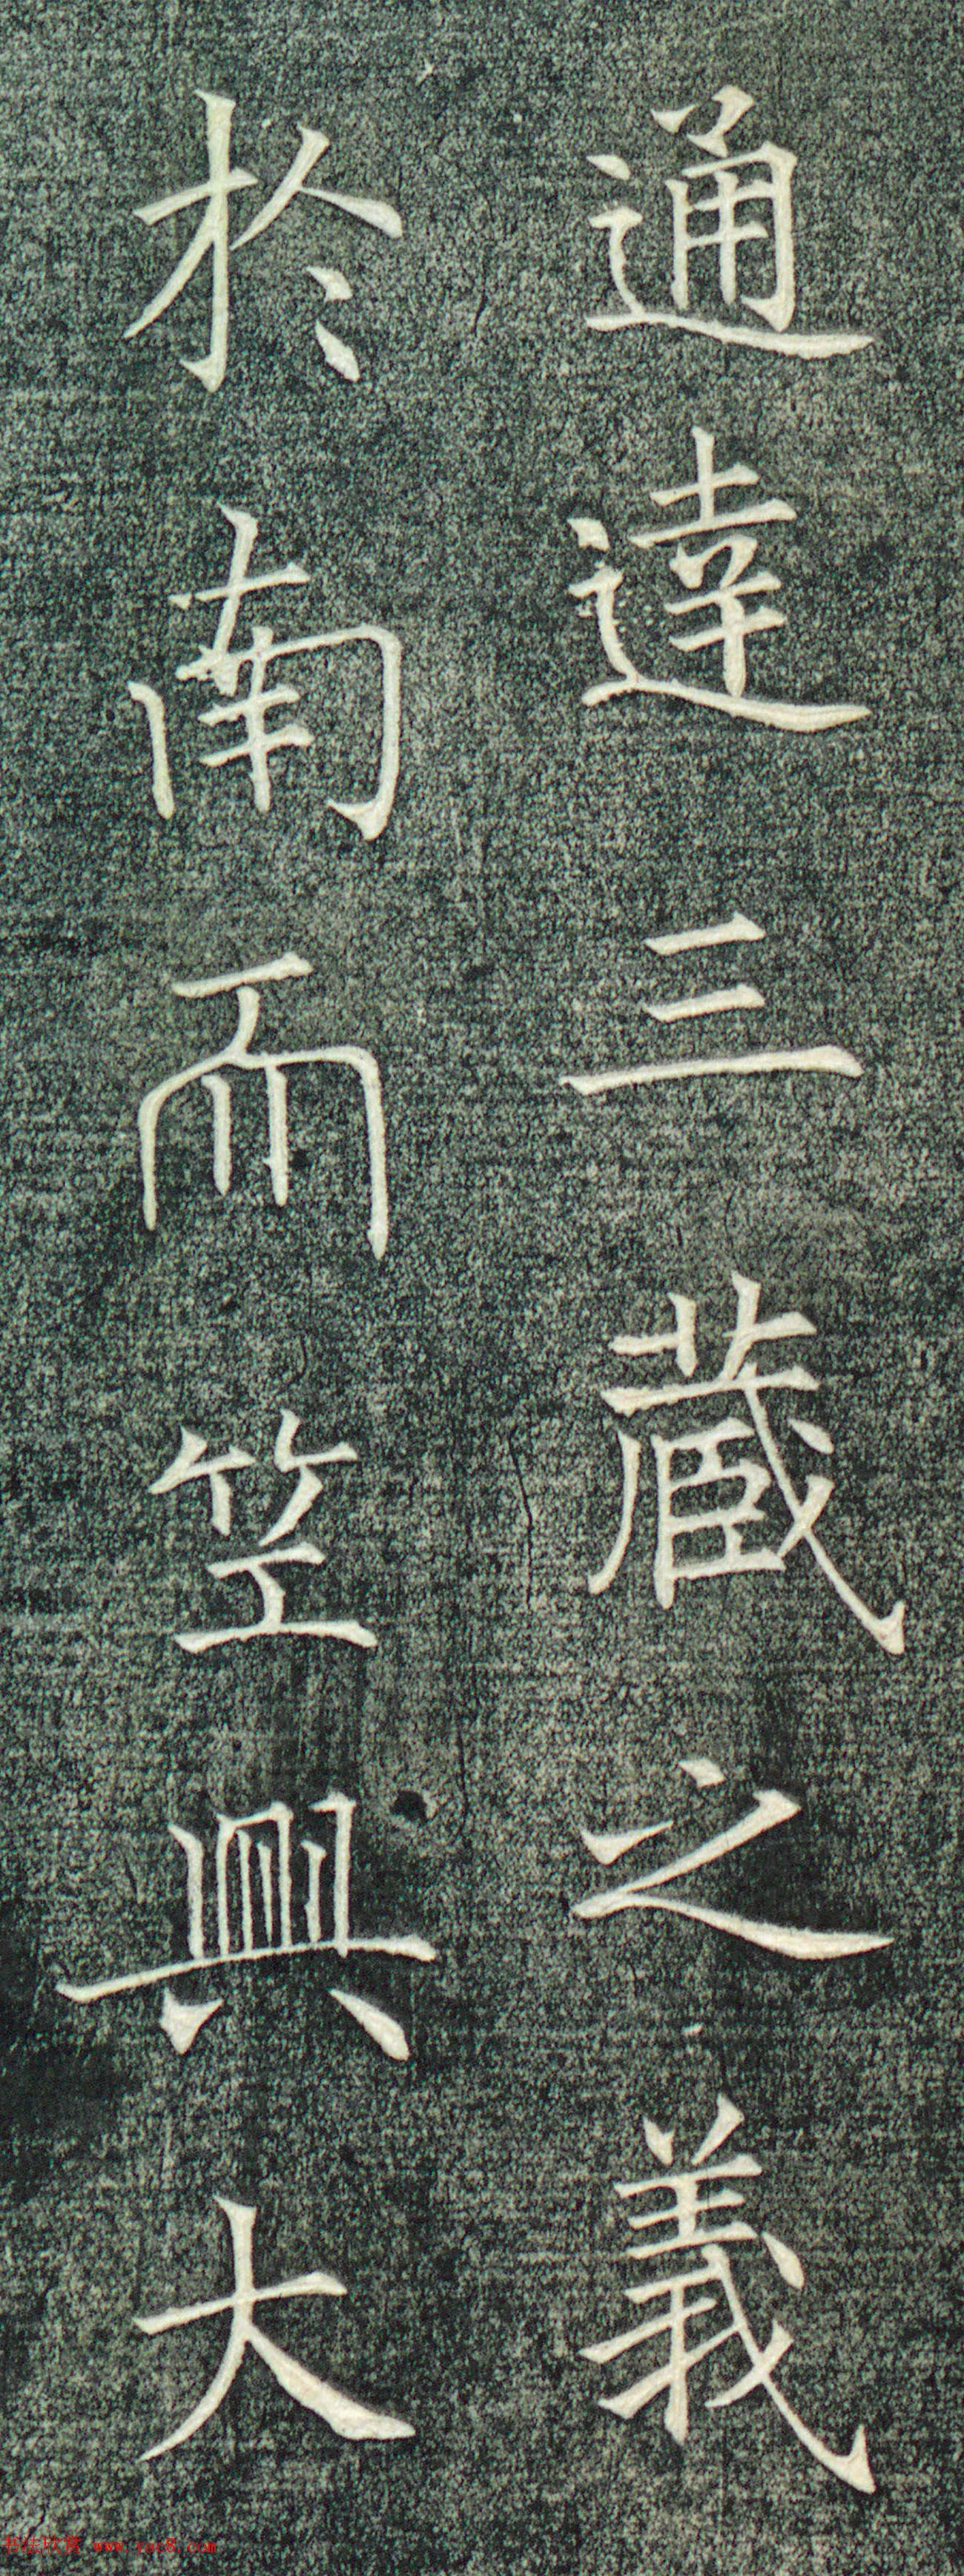 通達三蔵之義
於南而笁興大
书法欣赏 www.yac8.com